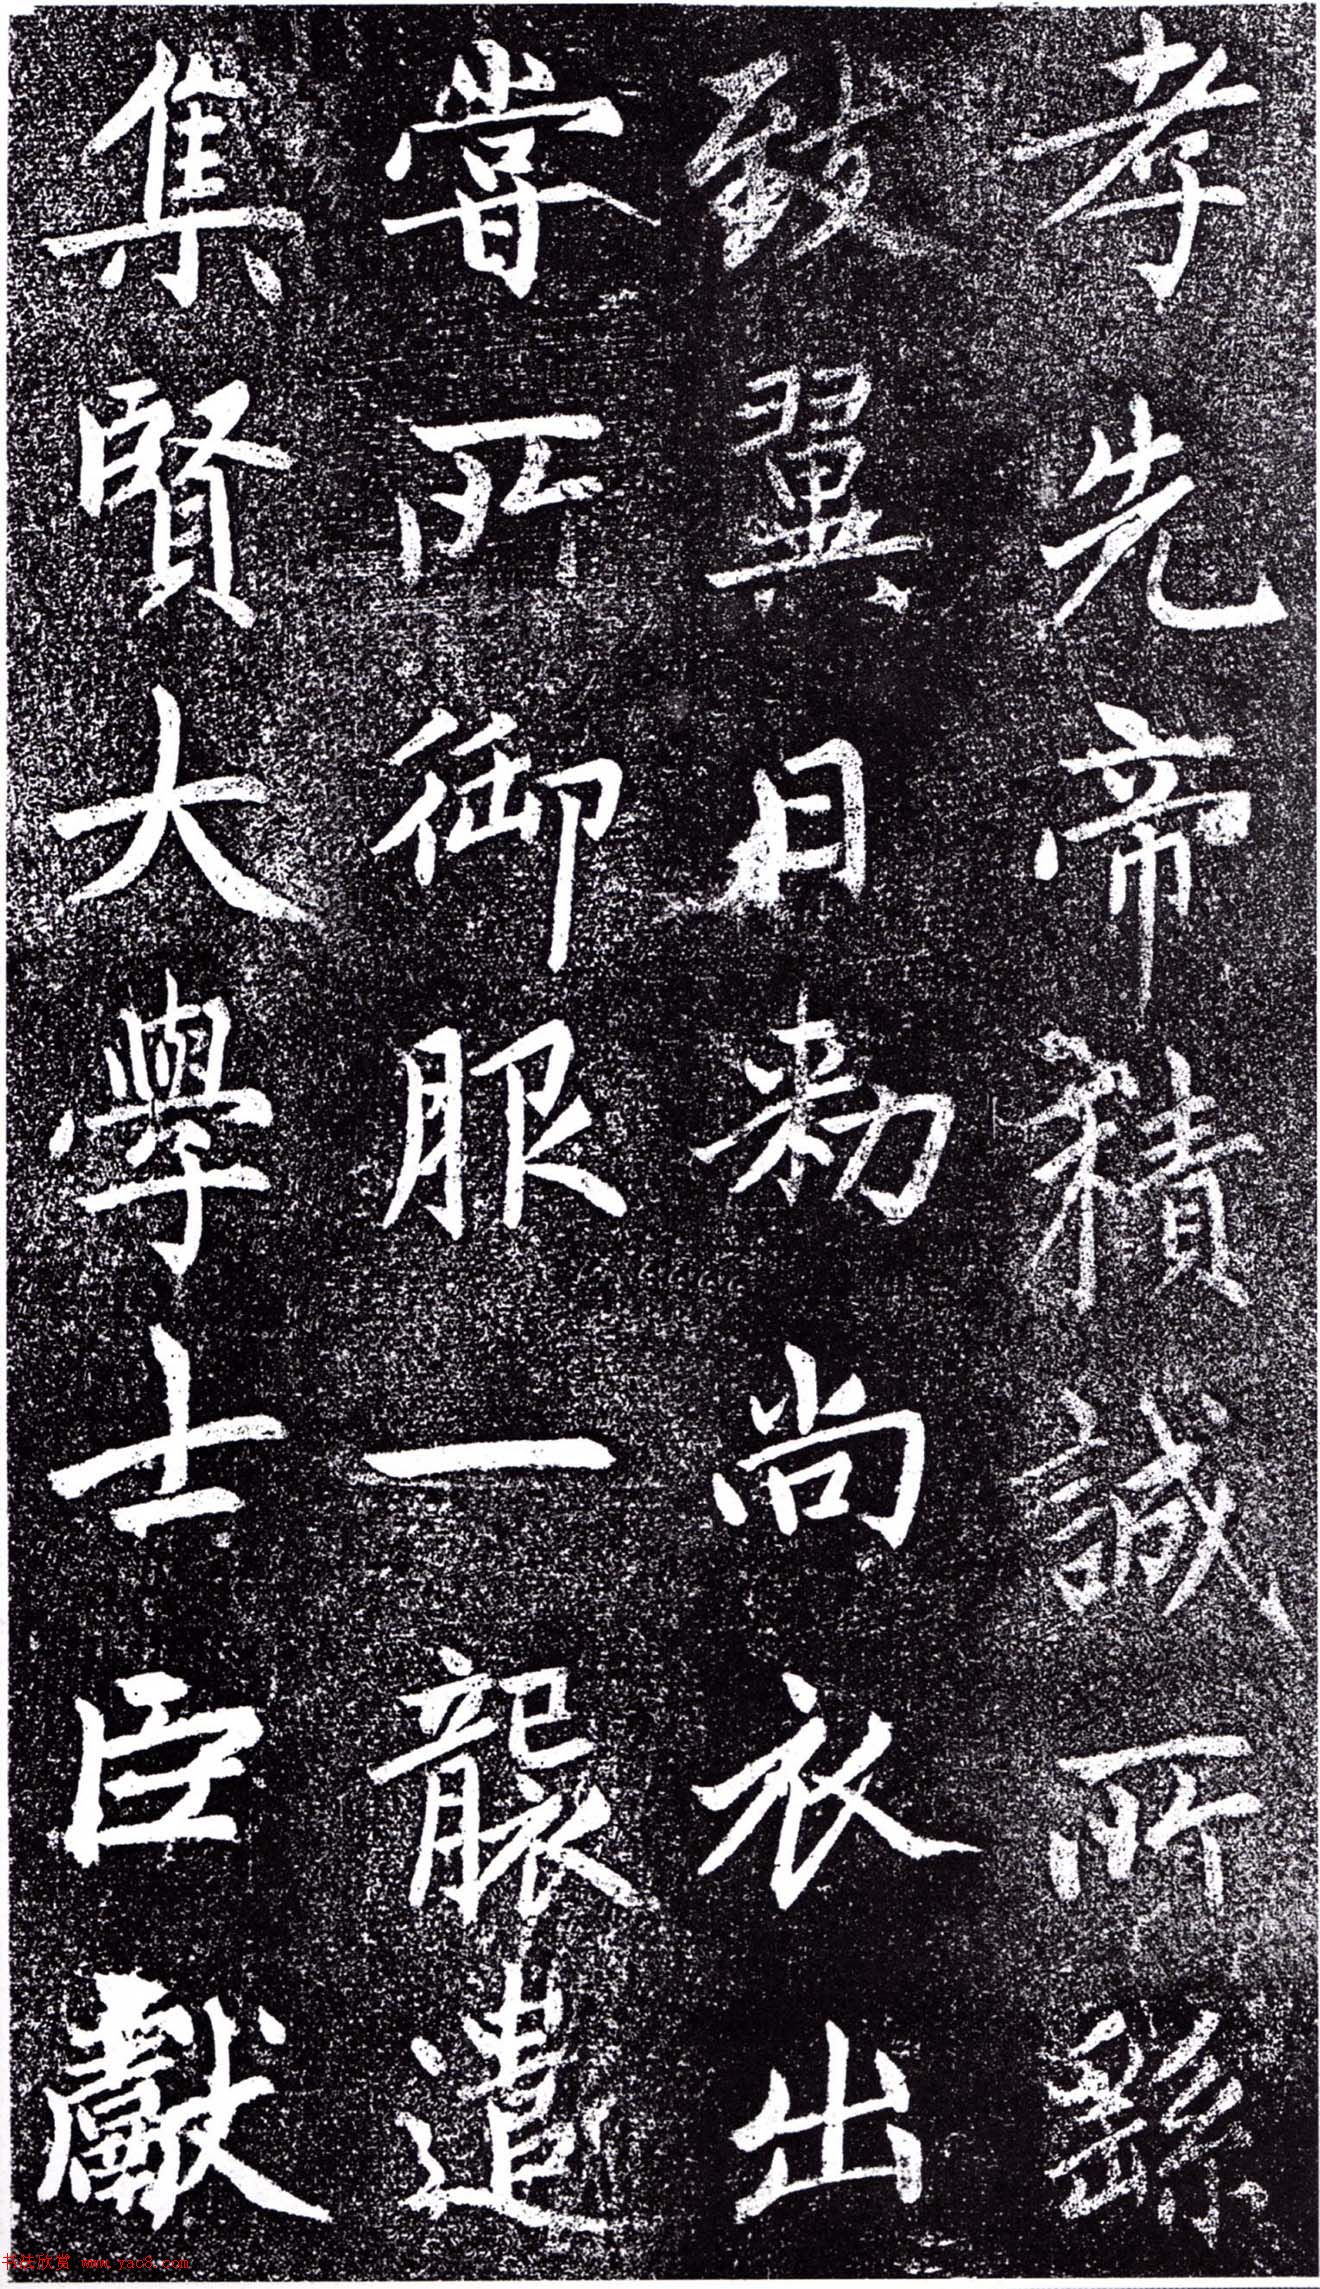 孝先帝積誠所繇
致翼日勑尚衣出
嘗所御服一襲遣
集賢大學士臣獻
书法欣赏 www.yac8.com